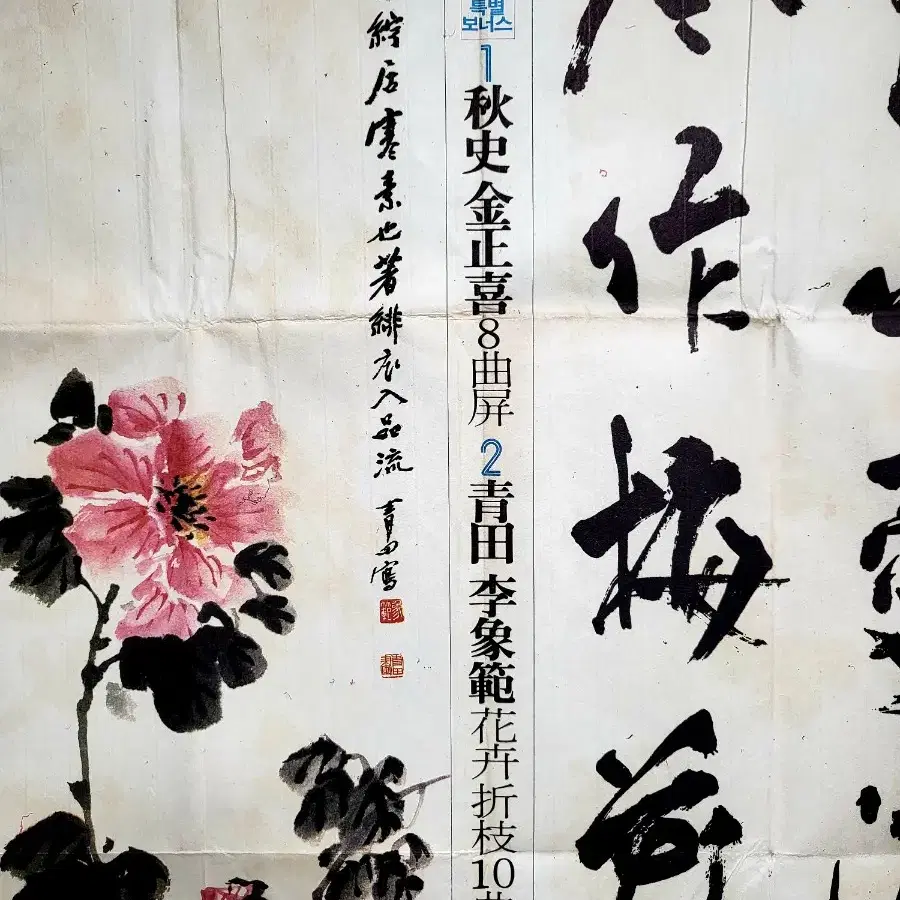 作梅
특별
보너스
1 秋史 金正喜 8曲屏 2 青田 李象範 花卉折枝10
綻后寒素也著緋衣入品流 青田寫